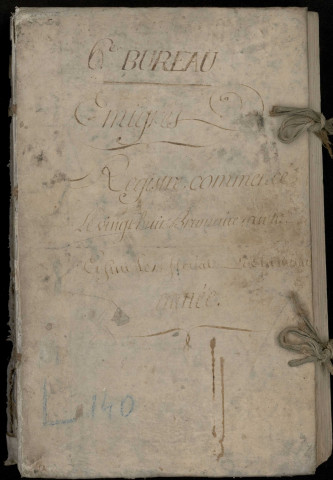 6e BUREAU
Emigrés
Registre commencé
Le vingt huit Brumaire
et fini les
année.
L 140